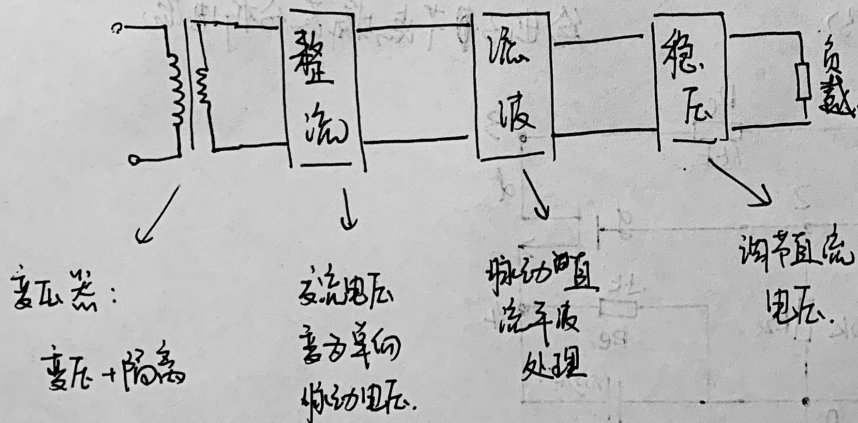 整
流
滤
波
稳
压
负
载
变压器：
变压+隔离
交流电压
变为单向
脉动电压.
脉动直
流平波
处理
调节直流
电压.